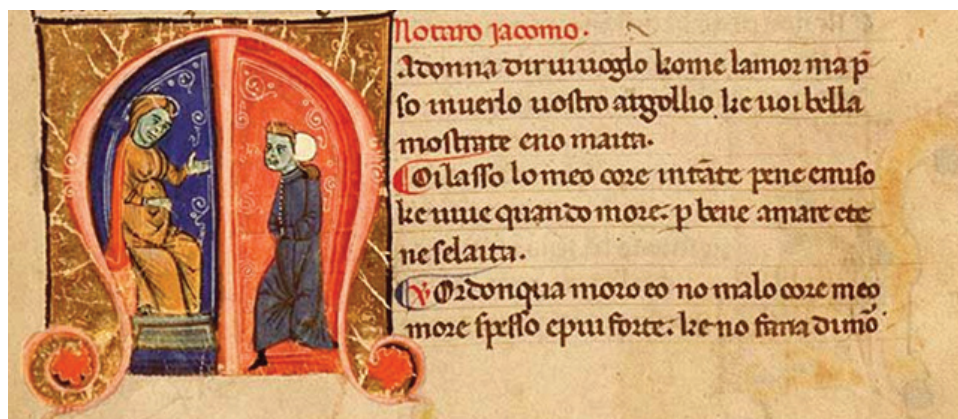 Notaro jacomo.
MAdonna dir uiuoglo kome lamor map̄
so inuerlo uostro argollio. ke uoi bella
mostrate eno maita.
Oilasso lo meo core intāte pene emiso
ke uiue quando more. p̄ bene amare ete
ne selaita.
Ordonqua moro eo no malo core meo
more spesso epiu forte. ke no faria dimō